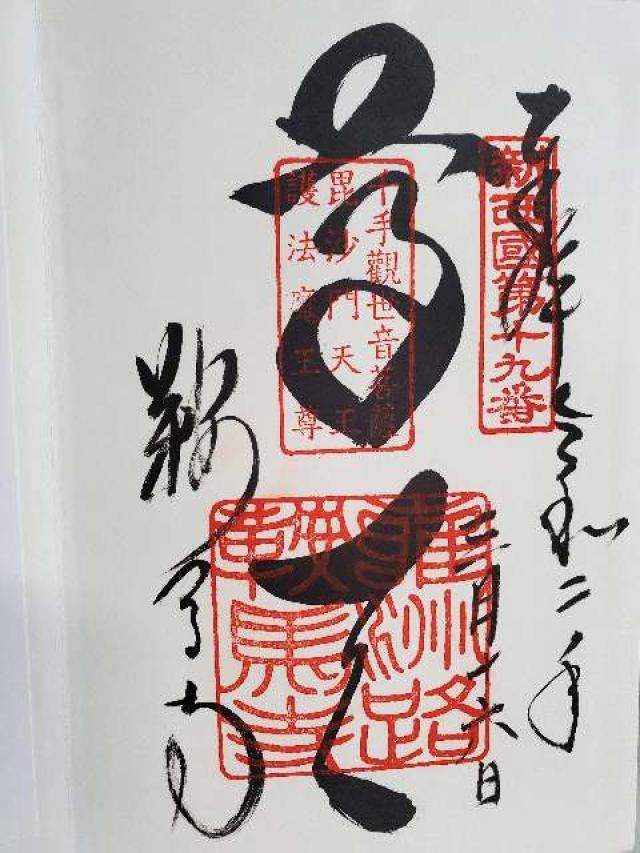 奉拝 令和二年
月 六日
新西國第十九番
尊天
千手觀世音菩薩
毘沙門天王
護法魔王尊
雍州路
鞍馬寺
鞍馬寺